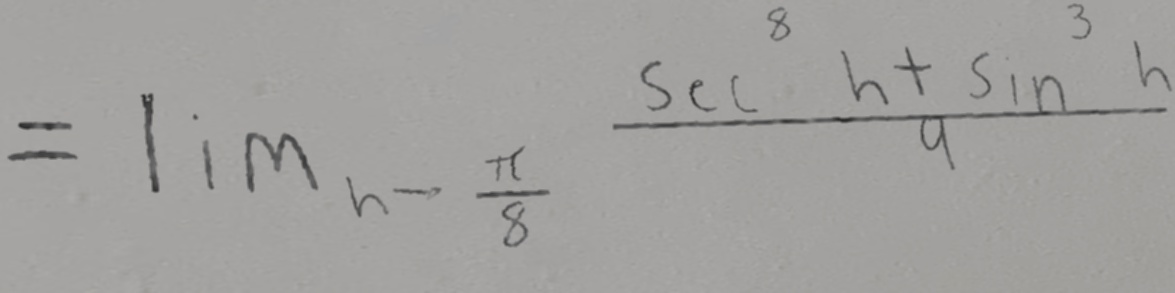 = lim_{h → \frac{π}{8}} \frac{sec^8 h + sin^3 h}{9}